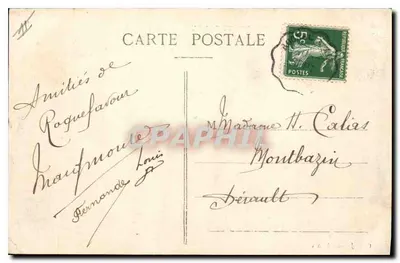 CARTE POSTALE
5c
POSTES
Amitiés de
Roquefavour
Fernande
Louis
M. Madame H. Calas
Montbazin
Hérault